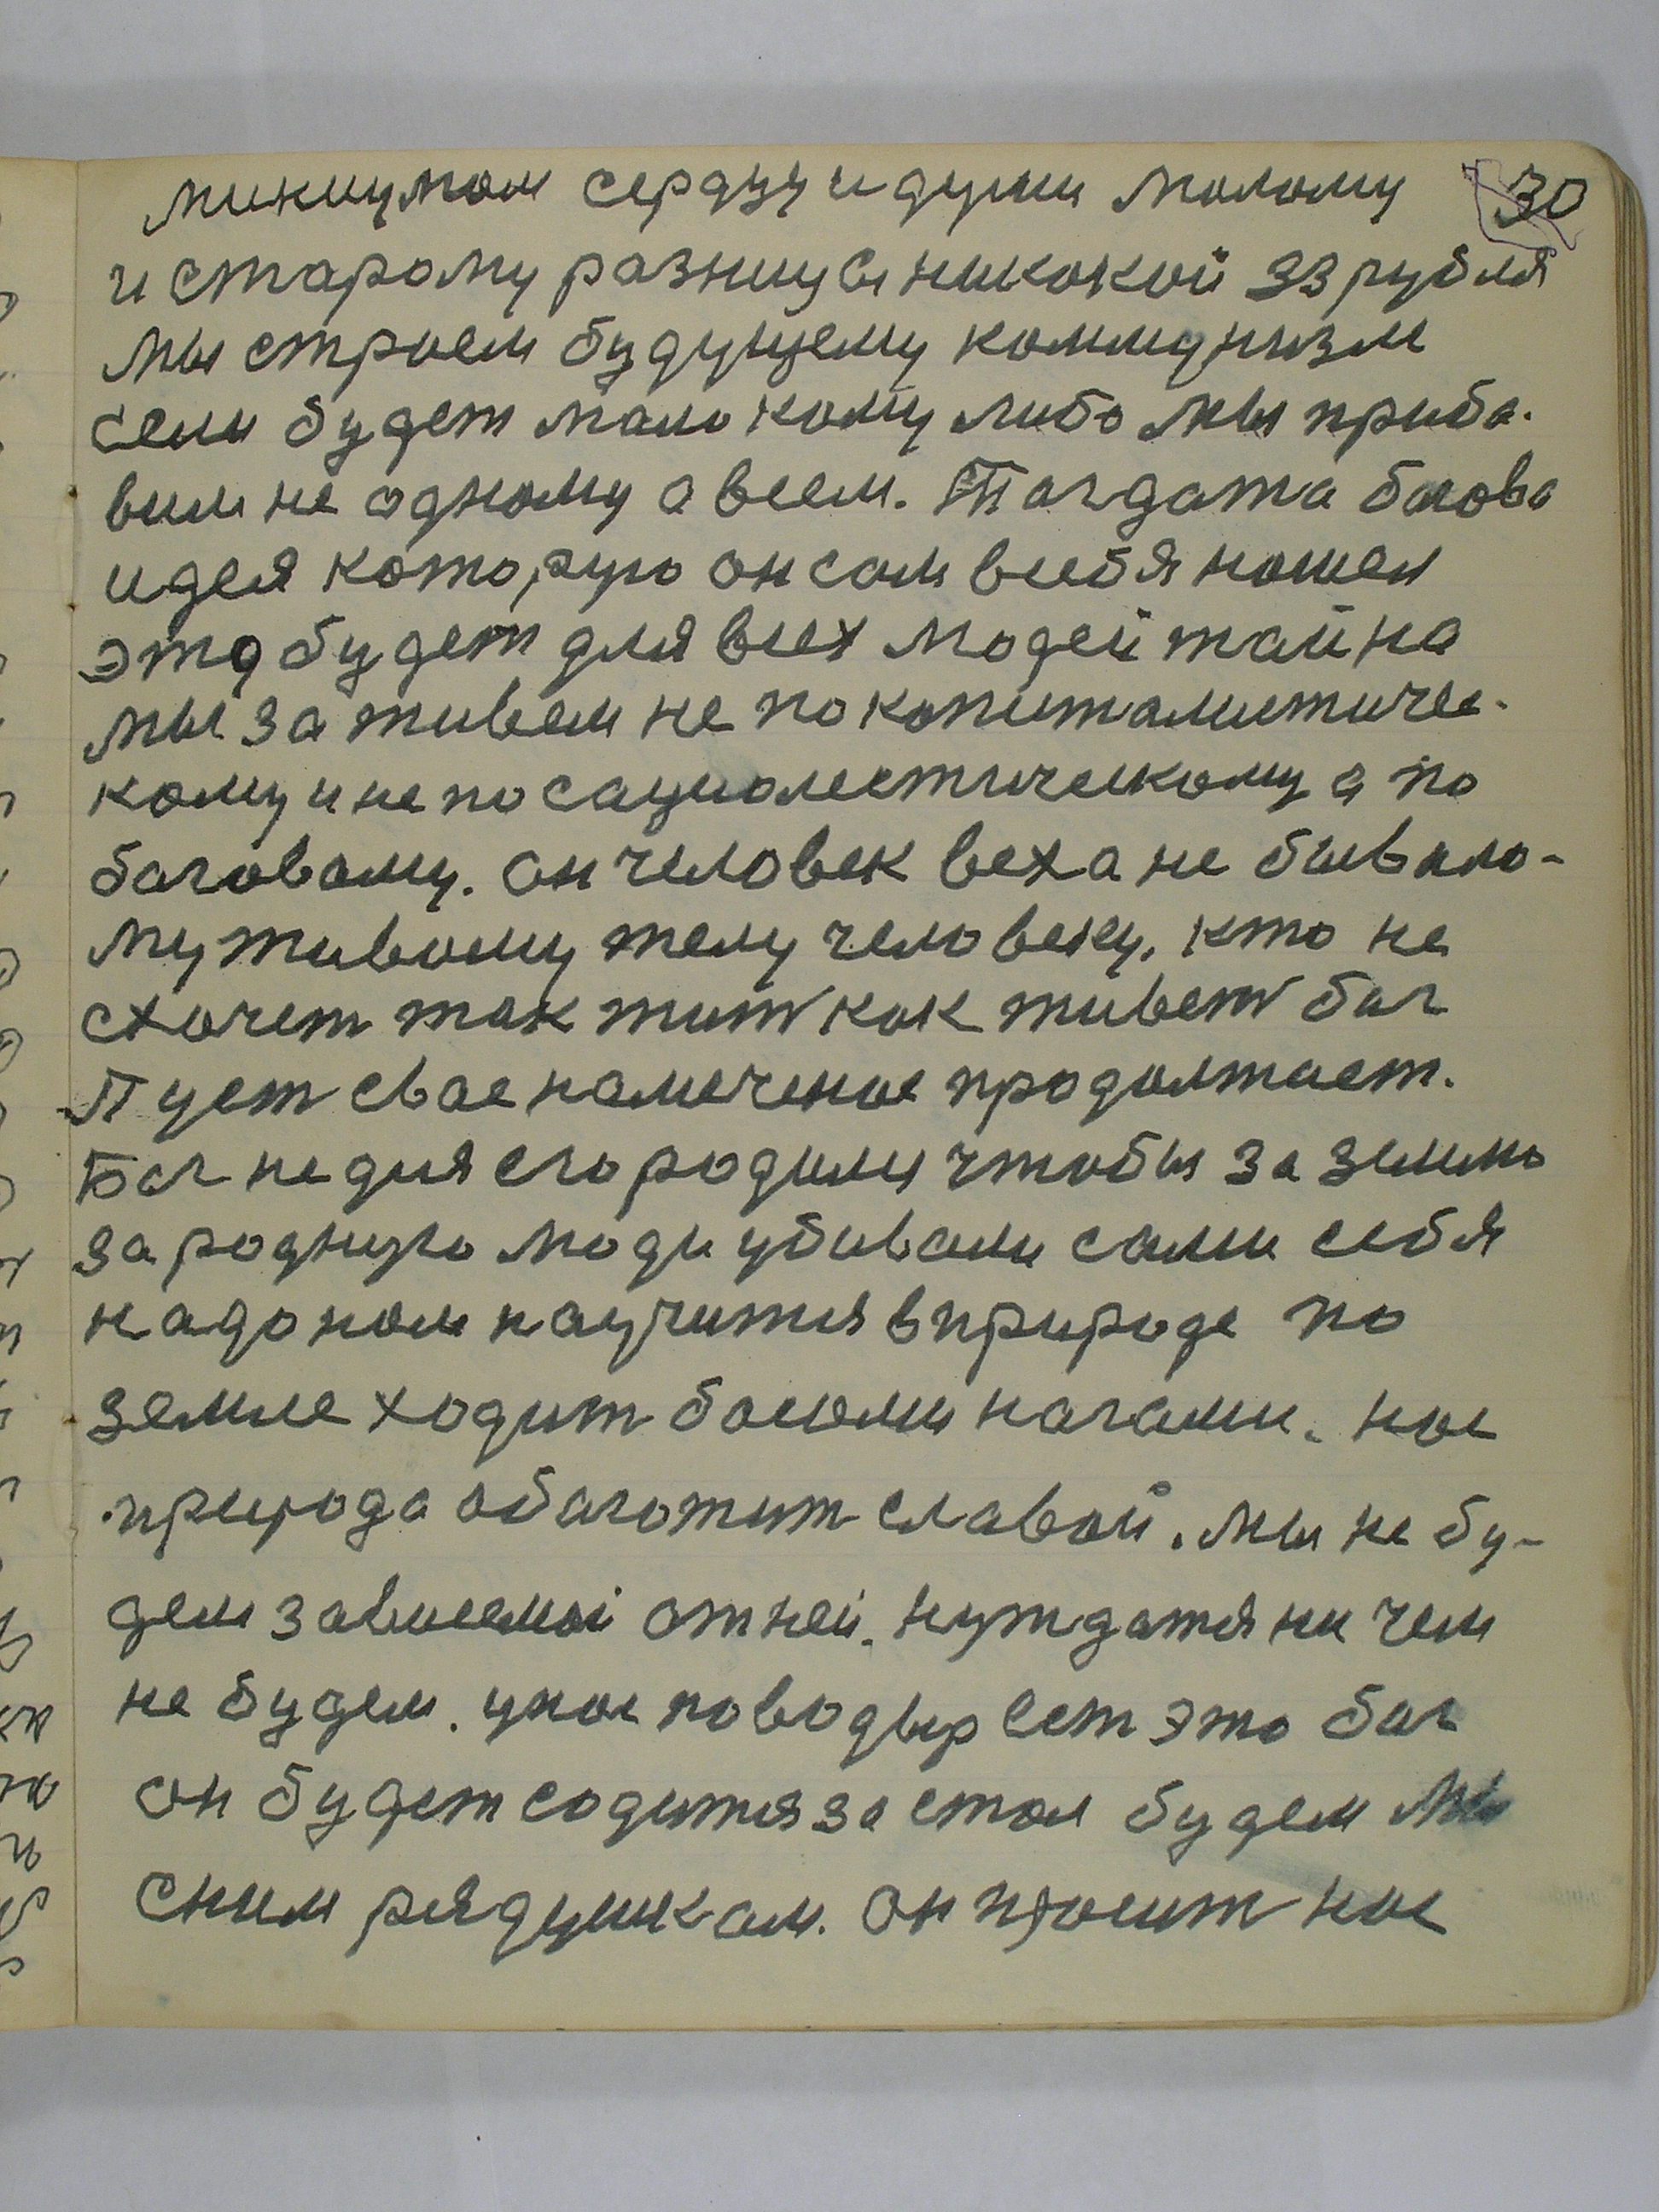 миниумом сердцу и души малому 30
и старому разницы никокой 33 рубля
мы строем будущему коммунизм
если будет мало кому либо мы приба-
вим не одному а всем. Тагдата богова
идея которую он сам всебя нашел
это будет для всех людей тайна
мы заживем не покапиталитичес-
кому и не по сациолестическому а по
баговаму. он человек всеха не бывало-
му живому телу человеку. кто не
схочет так жит как живет бог
Пуст свае намеченое продолжает.
Бог не для его родили чтобы за землю
за родную люди убивали сами себя
надо нам научится в природе по
земле ходит босыми ногами. нас
природа обаготит славой. мы не бу-
дем зависемы от ней. нуждатся ни чем
не будем. унас поводыр ест это бог
он будет садится за стол будем мы
сним рядушкам. он просит нас